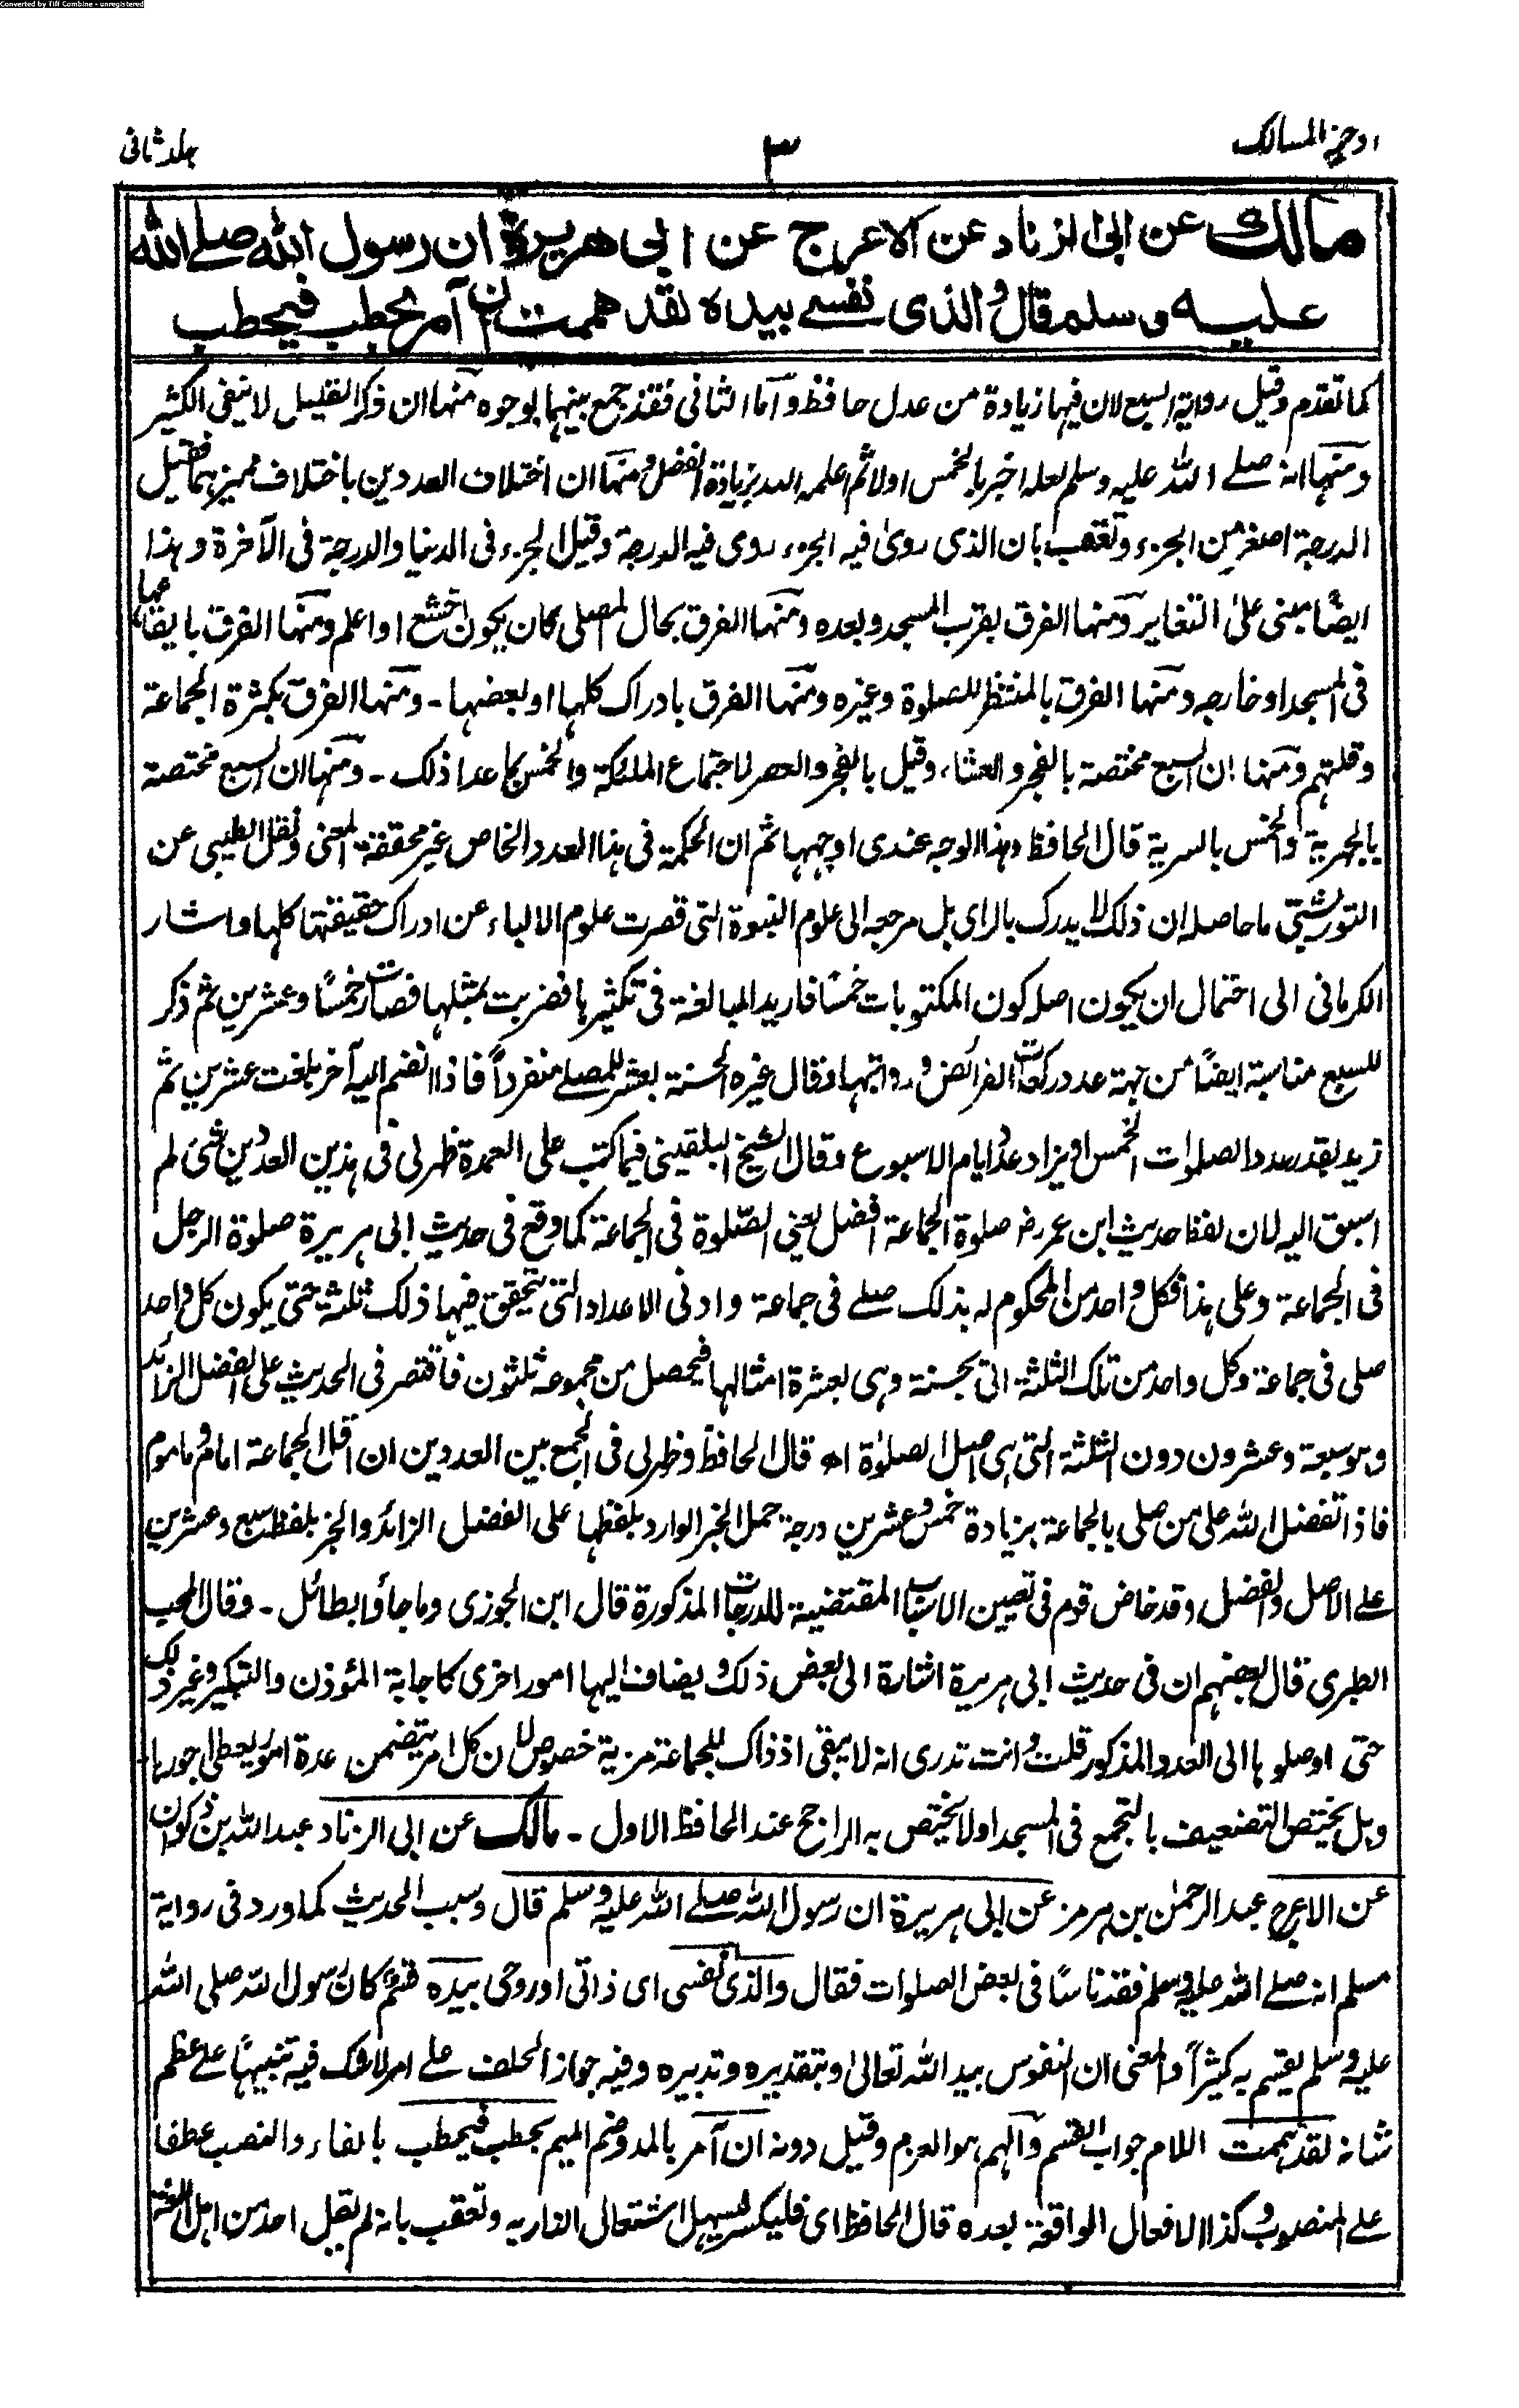 Converted by Tiff Combine - unregistered
اوجز المسالك ٣ جلد ثانى
مالك عن ابى الزناد عن الاعرج عن ابى هريرة ان رسول الله صلے الله
عليه وسلم قال والذى نفسے بيده لقد هممت ان آمر بحطب فيحطب
كما تقدم وقيل رواية السبع لان فيها زيادة من عدل حافظ واما الثانى فقد جمع بينهما بوجوه منها ان ذكر القليل لا ينفى الكثير
ومنها انه صلے الله عليه وسلم لعله اخبر بالخمس اولا ثم اعلمه الله بزيادة الفضل ومنها ان اختلاف العددين باختلاف مميزهما فقيل
الدرجة اصغر من الجزء وتعقب بان الذى روى فيه الجزء روى فيه الدرجة وقيل الجزء فى الدنيا والدرجة فى الآخرة وهذا
ايضًا مبنى على التغاير ومنها الفرق بقرب المسجد وبعده ومنها الفرق بحال المصلى كان يكون اخشع او اعلم ومنها الفرق بايقاعها
فى المسجد او خارجه ومنها الفرق بالمنتظر للصلوة وغيره ومنها الفرق بادراك كلها او بعضها ـ ومنها الفرق بكثرة الجماعة
وقلتهم ومنها ان السبع مختصة بالفجر والعشاء وقيل بالفجر والعصر لاجتماع الملئكة والخمس بما عدا ذلك ـ ومنها ان السبع مختصة
بالجهرية والخمس بالسرية قال الحافظ وهذا الوجه عندى اوجهها ثم ان الحكمة فى هذا العدد الخاص غير محققة المعنى ونقل الطيبى عن
التوربشتى ما حاصله ان ذلك لا يدرك بالراى بل مرجعه الى علوم النبوة التى قصرت علوم الالباء عن ادراك حقيقتها كلها واشار
الكرمانى الى احتمال ان يكون اصله كون المكتوبات خمسًا فاريد المبالغة فى تكثيرها فضربت بمثلها فصارت خمسًا وعشرين ثم ذكر
للسبع مناسبة ايضًا من جهة عدد ركعات الفرائض ورواتبها وقال غيره الحسنة بعشر للمصلے منفرداً فاذا انضم اليه آخر بلغت عشرين ثم
زيد بقدر عدد الصلوات الخمس او يزاد عدد ايام الاسبوع وقال الشيخ البلقينى فيما كتب على العمدة ظهر لى فى هذين العددين شئ لم
اسبق اليه لان لفظ حديث ابن عمر رض صلوة الجماعة افضل يعنى الصلوة فى الجماعة كما وقع فى حديث ابى هريرة صلوة الرجل
فى الجماعة وعلى هذا فكل واحد من المحكوم له بذلك صلے فى جماعة وادنى الاعداد التى يتحقق فيها ذلك ثلثة حتى يكون كل واحد
صلى فى جماعة وكل واحد من تلك الثلثة اتى بحسنة وهى بعشرة امثالها فيحصل من مجموعه ثلثون فاقتصر فى الحديث على الفضل الزائد
وهو سبعة وعشرون دون الثلثة التى هى اصل الصلوة اھ قال الحافظ وظهر لى فى الجمع بين العددين ان اقل الجماعة امام وماموم
فاذا تفضل الله على من صلى بالجماعة بزيادة خمس وعشرين درجة حمل الخبر الوارد بلفظها على الفضل الزائد والخبر بلفظ سبع وعشرين
علے الاصل والفضل وقد خاض قوم فى تعيين الاسباب المقتضية للدرجات المذكورة قال ابن الجوزى وما جاؤا بطائل ـ وقال المحب
الطبرى قال بعضهم ان فى حديث ابى هريرة اشارة الى بعض ذلك ويضاف اليها امور اخرى كاجابة المؤذن والتبكير وغير ذلك
حتى اوصلوها الى العدد المذكور قلت وانت تدرى انه لا يبقى اذ ذاك للجماعة مزية خصوص لان كل امر يتضمن عدة امور يعطى اجورها
وهل يختص التضعيف بالتجمع فى المسجد اولا يختص به الراجح عند الحافظ الاول ـ مالك عن ابى الزناد عبد الله بن ذكوان
عن الاعرج عبد الرحمٰن بن هرمز عن ابى هريرة ان رسول الله صلے الله عليه وسلم قال وسبب الحديث كما ورد فى رواية
مسلم انه صلے الله عليه وسلم فقد ناسًا فى بعض الصلوات فقال والذى نفسى اى ذاتى او روحى بيده قسم كان رسول الله صلى الله
عليه وسلم يقسم به كثيراً والمعنى ان النفوس بيد الله تعالى وبتقديره وتدبيره وفيه جواز الحلف علے امر لا شك فيه تنبيهًا علے عظم
شانه لقد هممت اللام جواب القسم والهم هو العزم وقيل دونه ان آمر بالمد وضم الميم بحطب فيحطب بالفاء والنصب عطفا
علے المنصوب وكذا الافعال الواقعة بعده قال الحافظ اى فليكسر ليسهل اشتعال النار به وتعقب بانه لم يقل احد من اهل اللغة